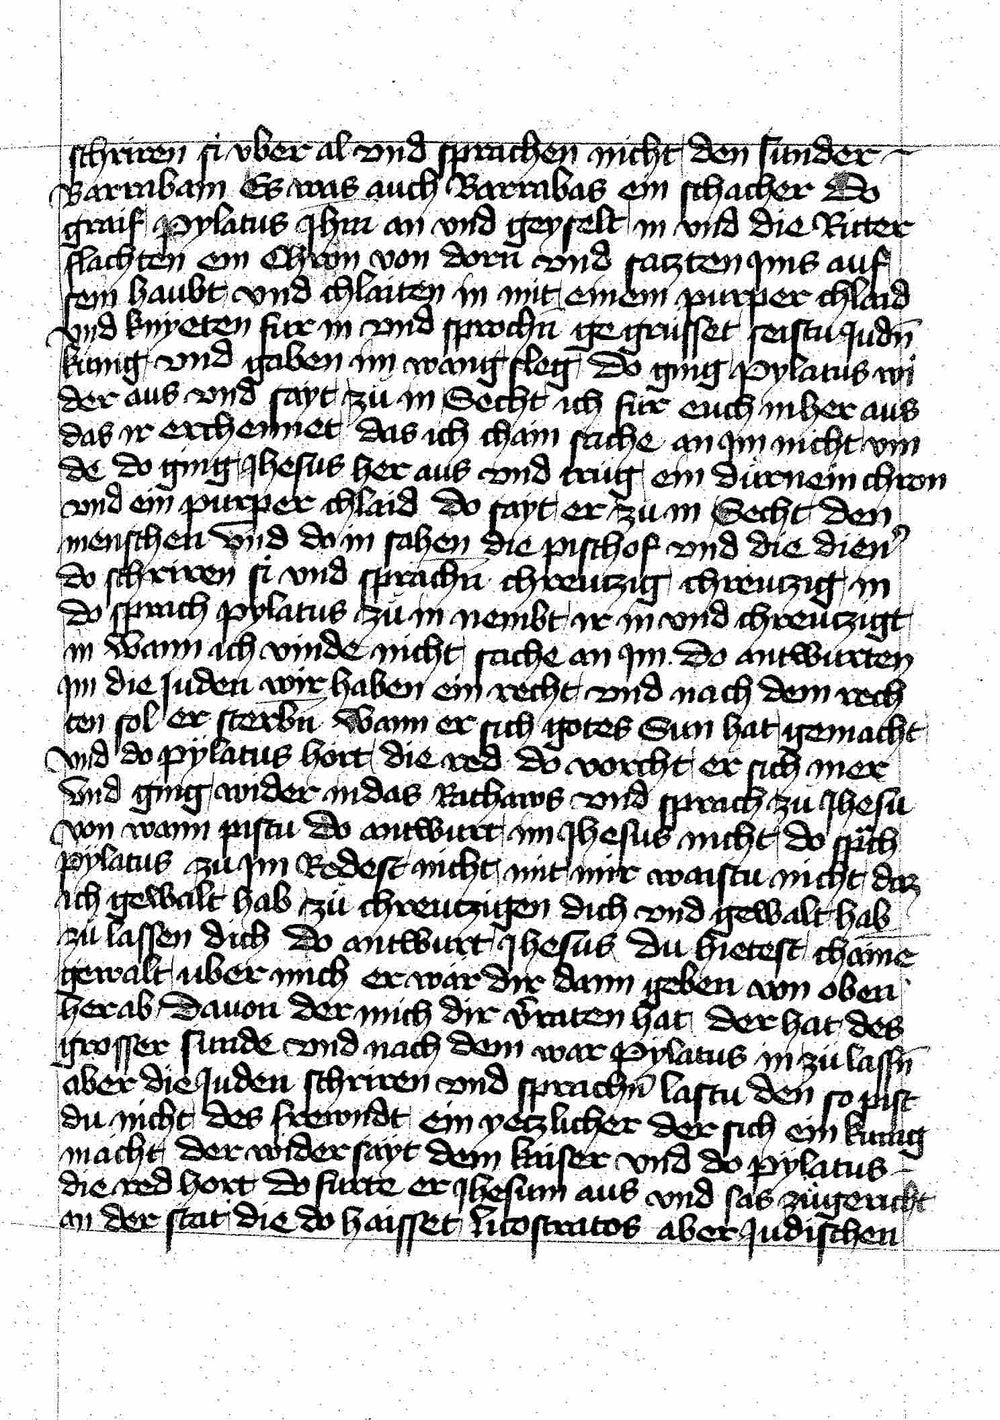 schriren si vber al vnd sprachen nicht den sunder
Barrabam Es was auch Barrabas ein schacher Do
graif Pylatus Jhm an vnd geyselt in vnd die Ritter
flachten ein Chron von dorn̄ vnd satzten Jms auf
sein haubt vnd chlaiten in mit einem purper chlaid
vnd knyeten fur in vnd sprochn̄ gegrüsset seistu Judn̄
kunig vnd gaben im wang sleg Do ging Pylatus wi
der aus vnd sayt zu in Secht ich fur euch in her aus
das ir erchennet das ich chain sache an Jm nicht vin
de do ging Jhesus her aus vnd trug ein dürnein chron
vnd ein purper chlaid Do sayt er zu in Secht den
menschen vnd do in sahen die pischof vnd die dien̾
do schriren si vnd sprachn̄ chreutzig chreutzig in
do sprach Pylatus zu in nembt ir in vnd chreutzigt
in Wann ich vinde nicht sache an Jm Do antwurten
Jm die Juden wir haben ein recht vnd nach dem rech
ten sol er sterbn̄ Wann er sich gotes Sun hat gemacht
vnd do Pylatus hort die red do vorcht er sich mer
vnd ging wider in das Rithaws vnd sprach zu Jhesu
von wann pistu Do antwurt im Jhesus nicht do sp̄ch
Pylatus zu Jm Redest nicht mit mir waistu nicht daz
ich gewalt hab zu chreutzigen dich vnd gewalt hab
zu lassen dich Do antwurt Jhesus du hietest chaine
gewalt uber mich er war dir dann geben von oben
herab Dauon der mich dir v̄raten hat der hat des
grosser sunde vnd nach dem war Pylatus in zu lassn̄
aber die Juden schriren vnd sprachn̄ lastu den so pist
du nicht des frewndt ein yetzlicher der sich ein kunig
macht der wider sayt dem kaiser vnd do Pylatus
die red hort do furte er Jhesum aus vnd sas zu gericht
an der stat die do haisset litostratos aber Judischen